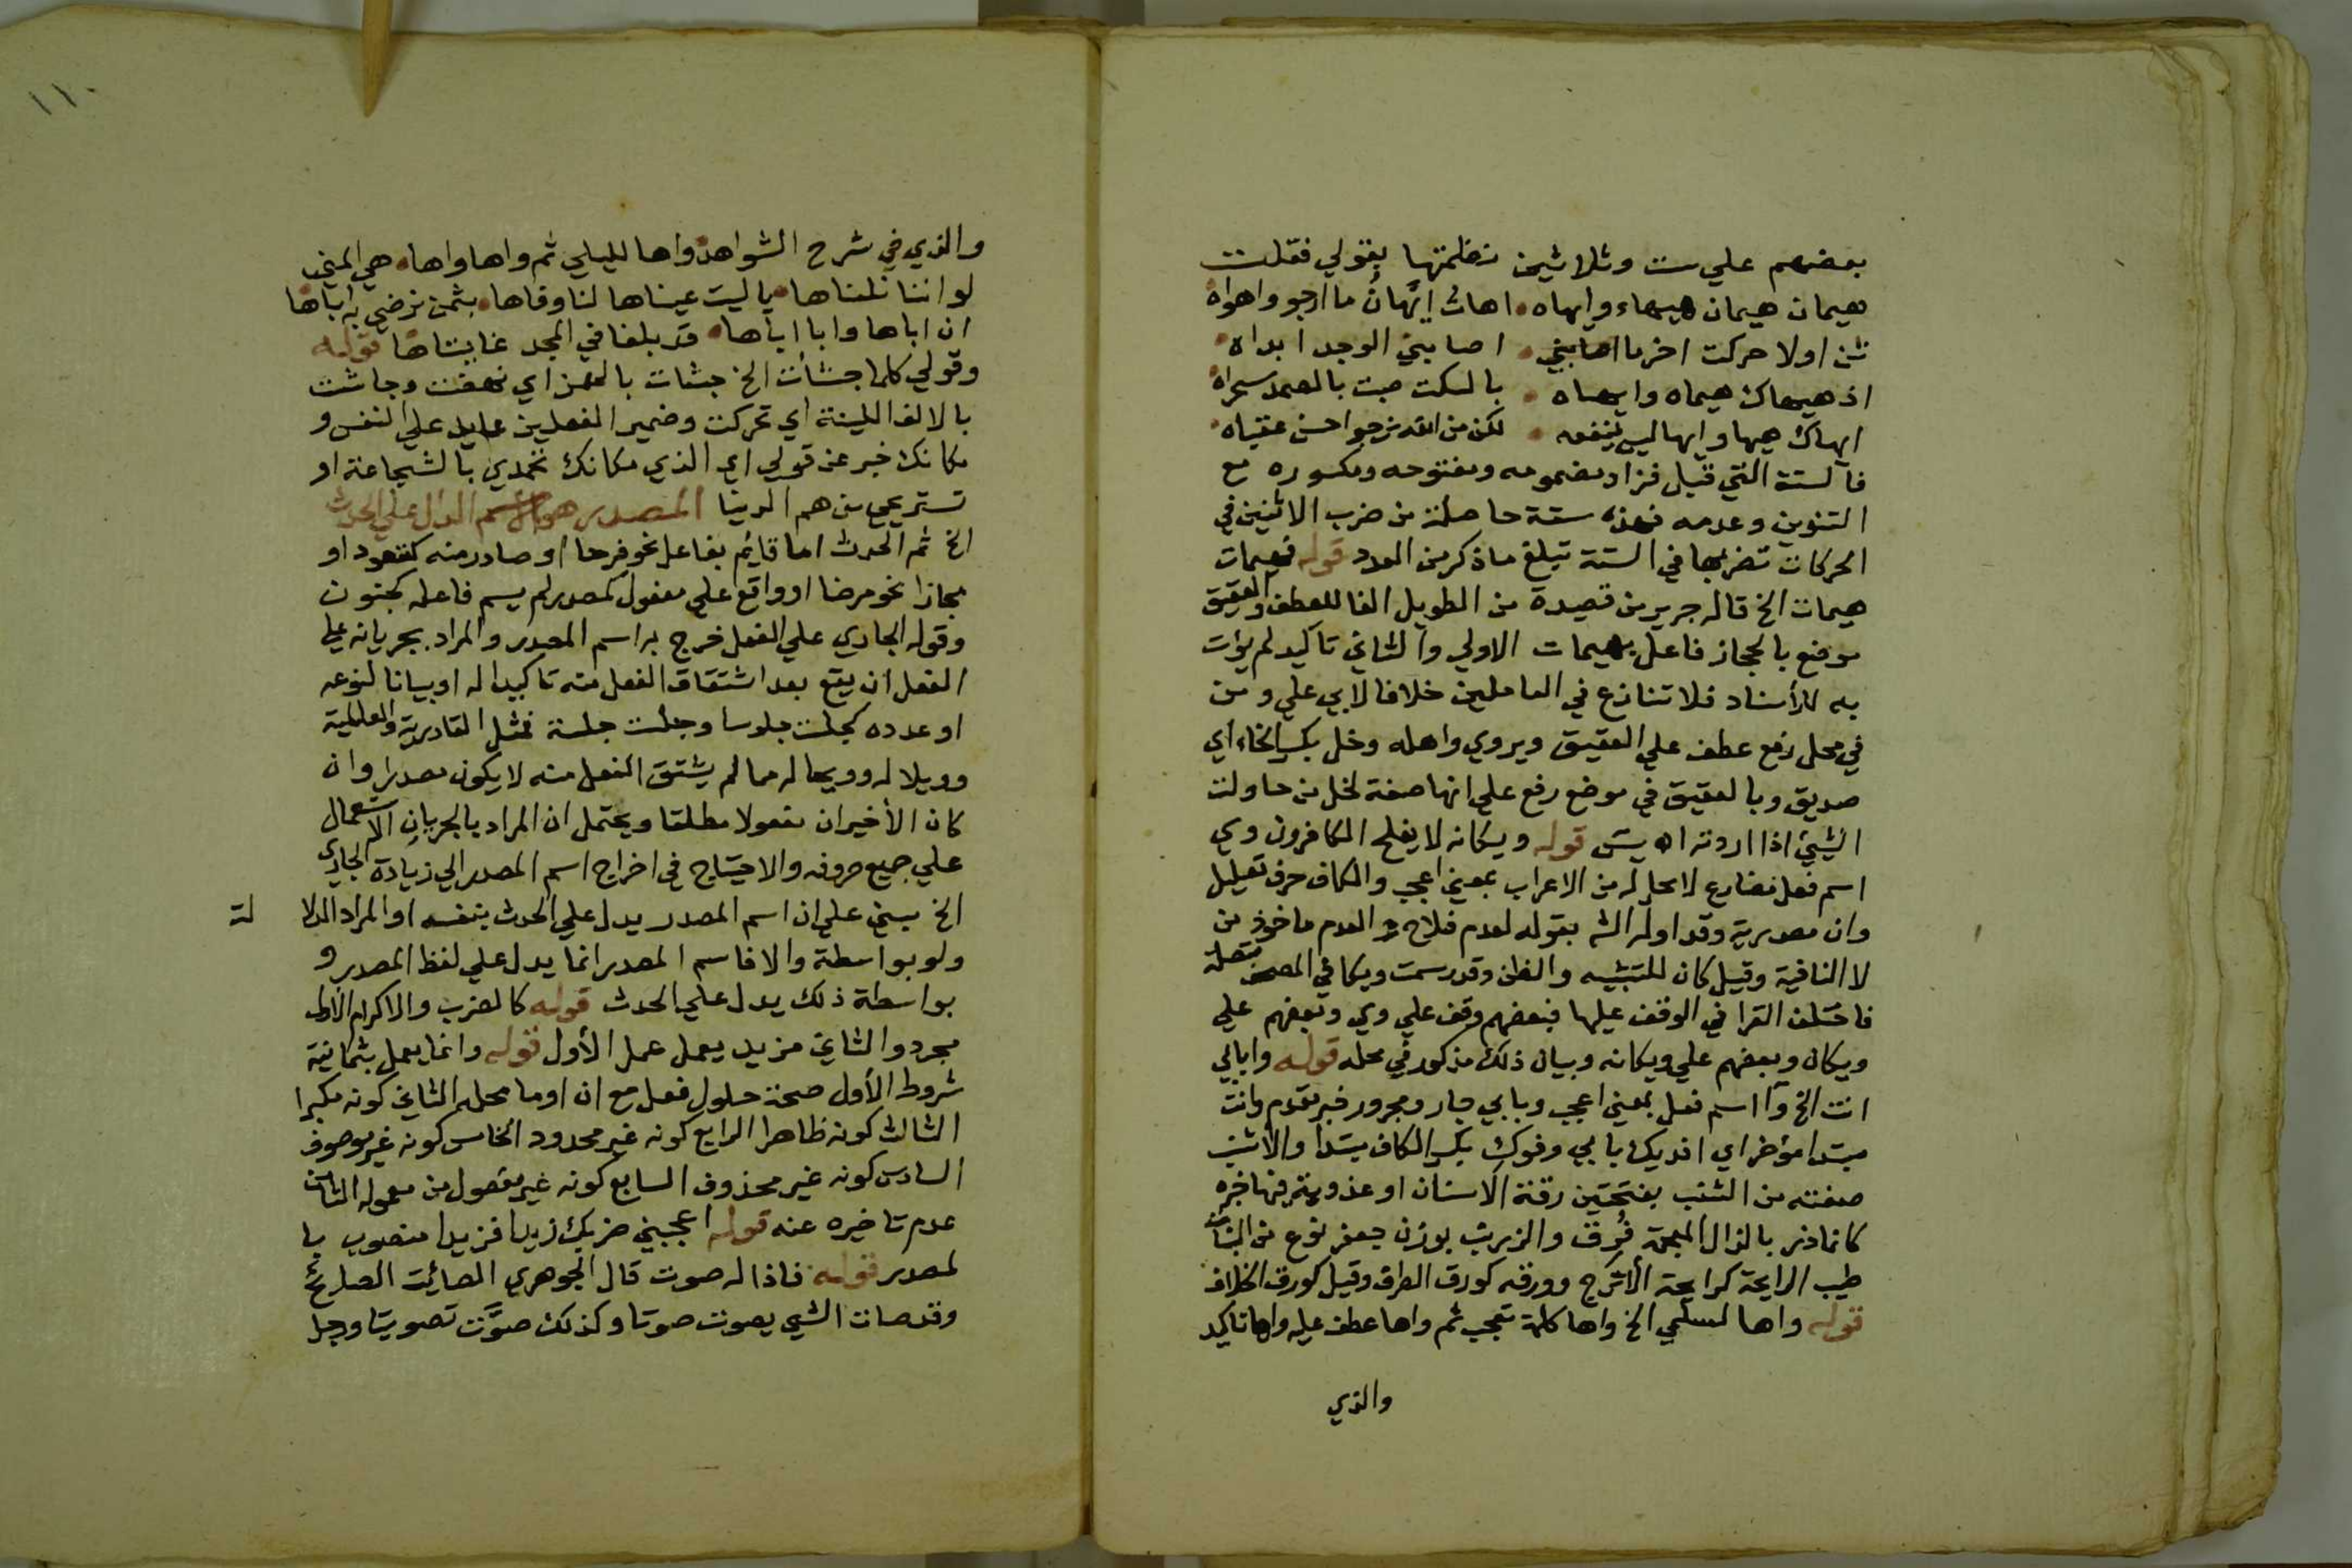 بعضهم علي ست وثلاثين نظمتها بقولي فقلت
هيهات هيهان هيهاء وايهاه اهات ايهان ما ارجو واهواه
ثن اولا حركت اخرما اصابني اصابني الوجد ابداه
اذ هيهاك هيهاه وايهاه بالسكت جيت بالعمد سراه
ايهاك هيها وايها ليس ينفعه لكن من الله نرجو احسن عقباه
فالستة التي قبل فزاد مضمومه ومفتوحه ومكسوره مع
التنوين وعدمه فهذه ستة حاصلة من ضرب الاثنين في
الحركات تضربها في الستة تبلغ ما ذكر من العدد قوله فهيهات
هيهات الخ قاله جرير من قصيدة من الطويل الفا للعطف والعقيق
موضع بالحجاز فاعل بهيهات الاولي والثاني تاكيد لم يؤت
به للأسناد فلا تنازع في العاملين خلافا لابي علي ومن
في محل رفع عطف علي العقيق ويروي واهله وخل بكسر الخاء اي
صديق وبالعقيق في موضع رفع علي انها صفة لخل من حاولت
الشيئ اذا اردته اه يس قوله ويكانه لا يفلح الكافرون وي
اسم فعل مضارع لا محل له من الاعراب بمعني اعجب والكاف حرف تعليل
وان مصدرية وقد اوله الش بقوله لعدم فلاح والعدم ماخوذ من
لا النافية وقيل كان للتشبيه والظن وقد رسمت ويكا في المصحف متصلة
فاختلف القرا في الوقف عليها فبعضهم وقف علي وي وبعضهم علي
ويكان وبعضهم علي ويكانه وبيان ذلك مذكور في محله قوله وابابي
انت الخ وا اسم فعل بمعني اعجب وبابي جار ومجرور خبر مقدم وانت
مبتدا مؤخر اي افديك بابي وفوك بكسر الكاف مبتدا والاشنب
صفته من الشنب بفتحتين رقة الاسنان او عذوبة فيها خبره
كانما ذر بالذال المعجمة فُرّق والزرنب بوزن جعفر نوع من النبات
طيب الرايحة كرايحة الأترج وورقه كورق الطرفا وقيل كورق الخلاف
قوله واها لسلمي الخ واها كلمة تعجب ثم واها عطف عليه واها تاكيد
والذي
١١٠
والذي في شرح الشواهد واها لليلي ثم واها واها هي المني
لو اننا نلناها يا ليت عيناها لنا وفاها بثمن نرضي به اباها
ان اباها وابا اباها قد بلغا في المجد غايتاها قوله
وقولي كلما جشأت الخ جشات بالهمز اي نهضت وجاشت
بالالف اللينة اي تحركت وضمير الفعلين عايد علي النفس و
مكانك خبر عن قولي اي الذي مكانك تحمدي بالشجاعة او
تستريحي من هم الدنيا المصدر هو الاسم الدال علي الحدث
الخ ثم الحدث اما قايم بفاعل نحو فرحا او صادر منه كقعود او
مجازا نحو مرضا او واقع علي مفعول كمصدر لم يسم فاعله كجنون
وقوله الجاري علي الفعل خرج به اسم المصدر والمراد بجريانه علي
الفعل ان يقع بعد اشتقاق الفعل منه تاكيدا له او بيانا لنوعه
او عدده كجلست جلوسا وجلست جلسة فمثل القادرية والعالمية
وويلا له وويحا له مما لم يشتق الفعل منه لا يكون مصدرا وان
كان الأخيران مفعولا مطلقا ويحتمل ان المراد بالجريان الاشتمال
علي جميع حروفه والاحتياج في اخراج اسم المصدر الي زيادة الجاري
الخ مبني علي ان اسم المصدر يدل علي الحدث بنفسه او المراد الدلا لة
ولو بواسطة والا فاسم المصدر انما يدل علي لفظ المصدر و
بواسطة ذلك يدل علي الحدث قوله كالضرب والاكرام الأول
مجرد والثاني مزيد يعمل عمل الأول قوله وانما يعمل بثمانية
شروط الأول صحة حلول فعل مع ان او ما محله الثاني كونه مكبرا
الثالث كونه ظاهرا الرابع كونه غير محدود الخامس كونه غير موصوف
السادس كونه غير محذوف السابع كونه غير مفصول من معموله الثامن
عدم تاخيره عنه قوله اعجبني ضربك زيدا فزيدا منصوب با
لمصدر قوله فاذا له صوت قال الجوهري الصائت الصايح
وقد صات الشي يصوت صوتا وكذلك صوَّت تصويتا ورجل